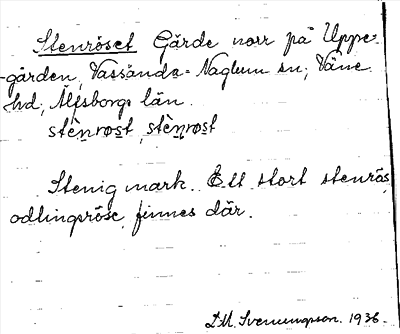 Stenröset Gärde norr på Uppe-
gården, Vassända-Naglum sn, Väne
hd, Älfsborgs län.
stèn̥røst, stèn̥røst
Stenig mark. Ett stort stenrös,
odlingsröse, finnes där.
D.M. Svenungsson. 1936.